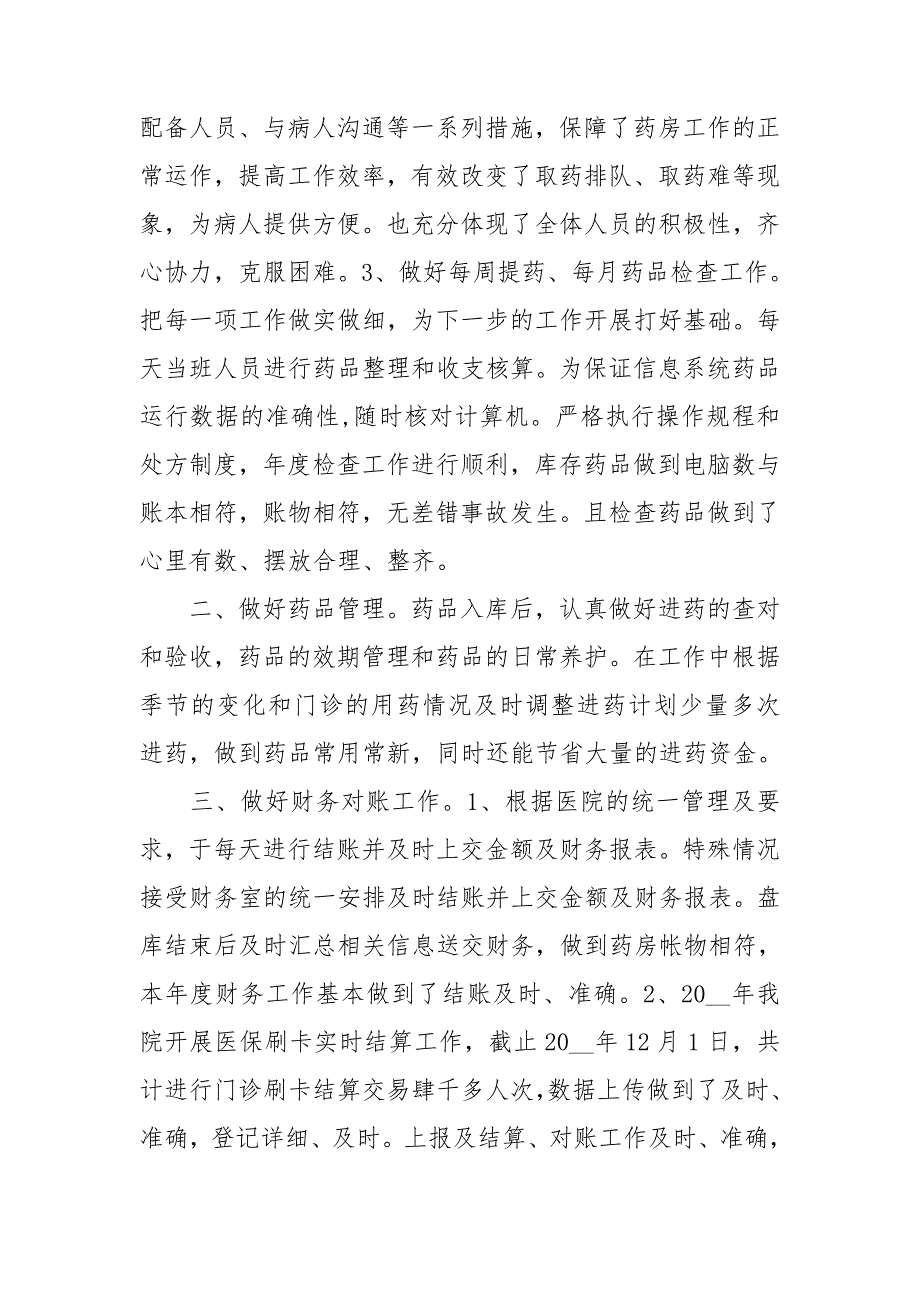 配备人员、与病人沟通等一系列措施，保障了药房工作的正
常运作，提高工作效率，有效改变了取药排队、取药难等现
象，为病人提供方便。也充分体现了全体人员的积极性，齐
心协力，克服困难。3、做好每周提药、每月药品检查工作。
把每一项工作做实做细，为下一步的工作开展打好基础。每
天当班人员进行药品整理和收支核算。为保证信息系统药品
运行数据的准确性,随时核对计算机。严格执行操作规程和
处方制度，年度检查工作进行顺利，库存药品做到电脑数与
账本相符，账物相符，无差错事故发生。且检查药品做到了
心里有数、摆放合理、整齐。
二、做好药品管理。药品入库后，认真做好进药的查对
和验收，药品的效期管理和药品的日常养护。在工作中根据
季节的变化和门诊的用药情况及时调整进药计划少量多次
进药，做到药品常用常新，同时还能节省大量的进药资金。
三、做好财务对账工作。1、根据医院的统一管理及要
求，于每天进行结账并及时上交金额及财务报表。特殊情况
接受财务室的统一安排及时结账并上交金额及财务报表。盘
库结束后及时汇总相关信息送交财务，做到药房帐物相符，
本年度财务工作基本做到了结账及时、准确。2、20__年我
院开展医保刷卡实时结算工作，截止 20__年 12 月 1 日，共
计进行门诊刷卡结算交易肆千多人次,数据上传做到了及时、
准确，登记详细、及时。上报及结算、对账工作及时、准确，